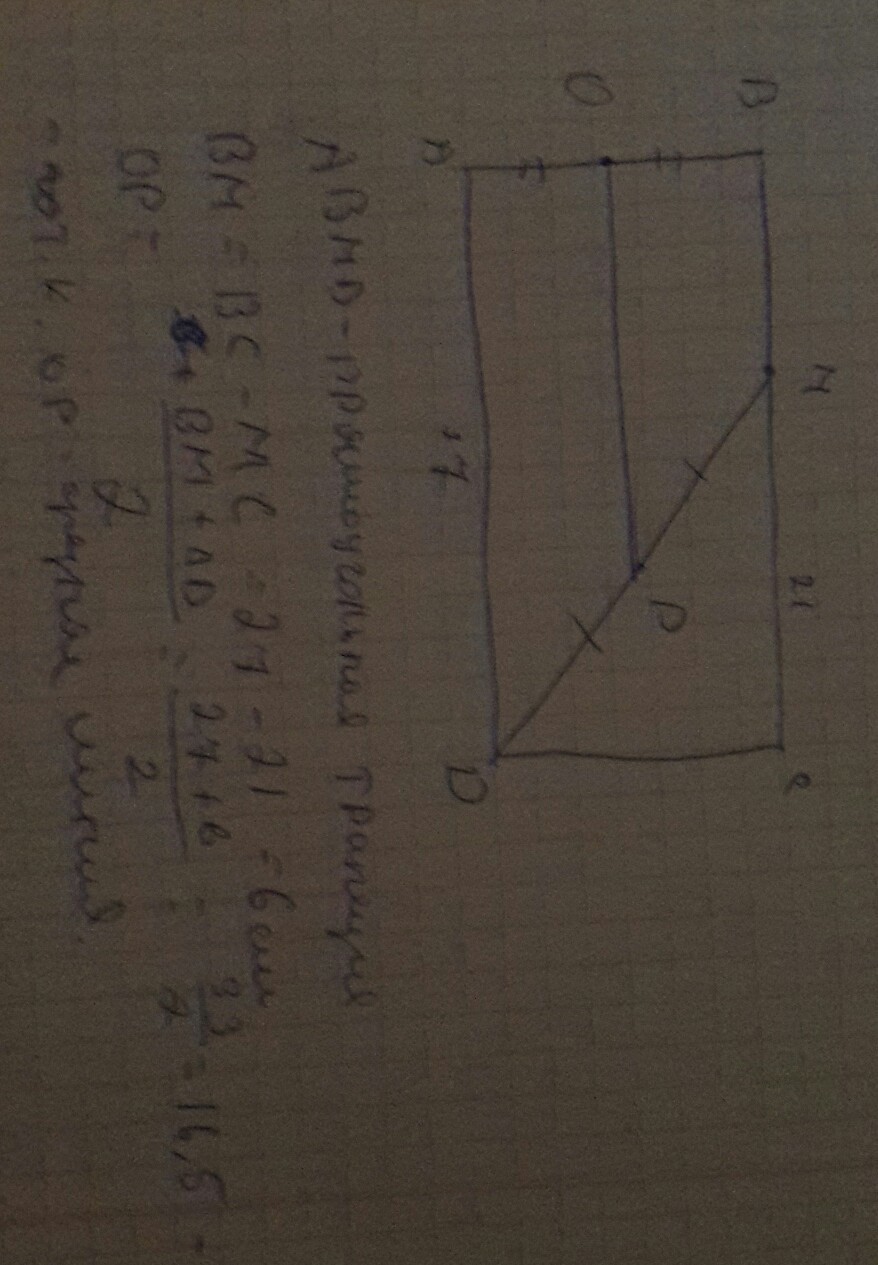 B M 21 C
O P
A 27 D
ABMD - прямоугольная трапеция
BM = BC - MC = 27 - 21 = 6 см
OP = BM + AD / 2 = 27 + 6 / 2 = 33 / 2 = 16,5 -
- т.к. OP - средняя линия.